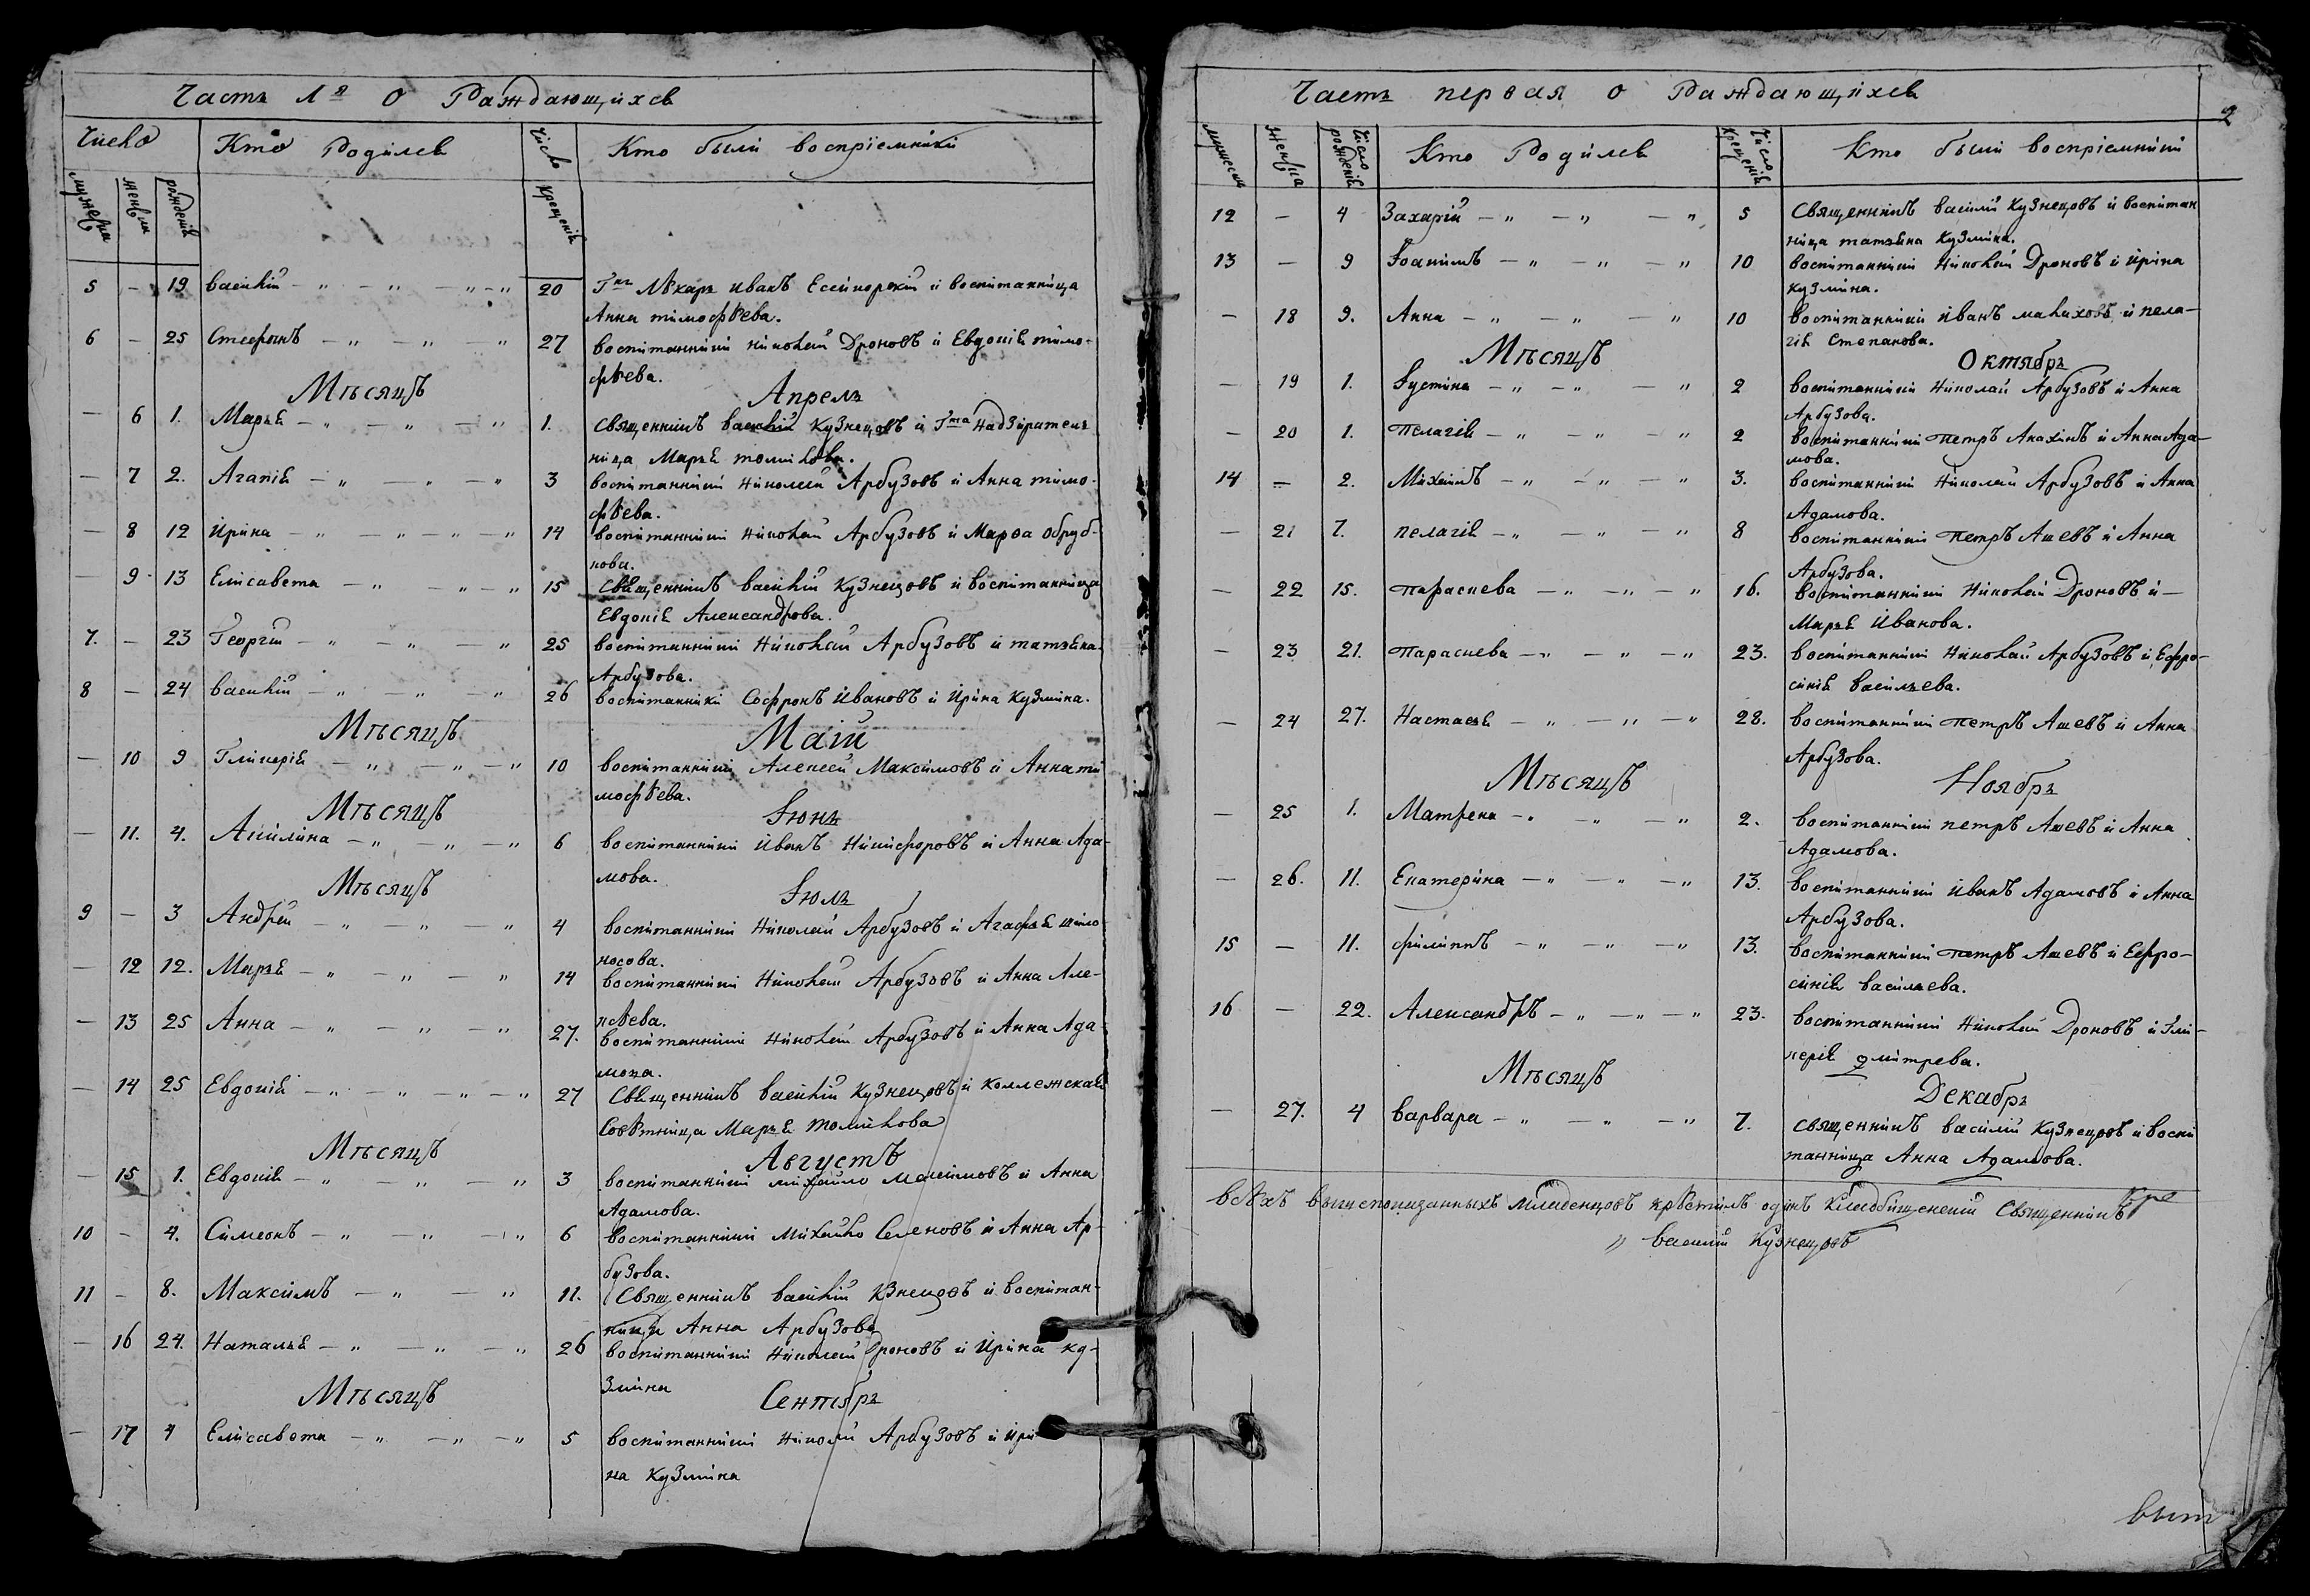 Часть 1я О Раждающихся
Число Кто Родился Число Кто были воспріемники
мужеска женска рожденія крещенія
5 — 19 Василій — „ — „ — „ — „ 20 Гнъ Лѣкарь Иванъ Есипорскій и воспитанница
Анна Тимофѣева.
6 — 25 Стефанъ — „ — „ — „ 27 воспитанники Николай Дроновъ и Евдокія Тимо-
фѣева.
Мѣсяцъ Апрель
— 6 1. Марья — „ — „ — „ 1. Священникъ Василій Кузнецовъ и Гжа Надзиратель
ница Марья Толмикова.
— 7 2. Агапія — „ — „ — „ 3 воспитанники Николай Арбузовъ и Анна Тимо-
фѣева.
— 8 12 Ирина — „ — „ — „ — „ 14 воспитанники Николай Арбузовъ и Марѳа Обруб-
нова.
— 9 13 Елисавета — „ — „ — „ 15 Священникъ Василій Кузнецовъ и воспитанница
Евдокія Александрова.
7. — 23 Георгій — „ — „ — „ 25 воспитанники Николай Арбузовъ и Татьяна
Арбузова.
8 — 24 Василій — „ — „ — „ 26 воспитанники Софронъ Ивановъ и Ирина Кузмина.
Мѣсяцъ Маій
— 10 9 Гликерія — „ — „ — „ 10 воспитанники Алексей Максимовъ и Анна Ти
мофѣева.
Мѣсяцъ Іюнь
— 11. 4. Акилина — „ — „ — „ 6 воспитанники Иванъ Никифоровъ и Анна Ада-
мова.
Мѣсяцъ Іюль
9 — 3 Андрей — „ — „ — „ 4 воспитанники Николай Арбузовъ и Агафья Шило
носова.
— 12 12. Марья — „ — „ — „ 14 воспитанники Николай Арбузовъ и Анна Але-
ксѣева.
— 13 25 Анна — „ — „ — „ 27. воспитанники Николай Арбузовъ и Анна Ада
мова.
— 14 25 Евдокія — „ — „ — „ — „ 27 Священникъ Василій Кузнецовъ и Коллежская
Совѣтница Марья Толмикова
Мѣсяцъ Августъ
— 15 1. Евдокія — „ — „ — „ 3 воспитанники Михайло Максимовъ и Анна
Адамова.
10 — 4. Симеонъ — „ — „ — „ 6 воспитанники Михайло Семеновъ и Анна Ар-
бузова.
11 — 8. Максимъ — „ — „ 11. Священникъ Василій Кзнецовъ и воспитан-
ница Анна Арбузова
— 16 24. Наталья — „ — „ — „ 26 воспитанники Николай Дроновъ и Ирина Ку-
змина
Мѣсяцъ Сентябрь
— 17 4 Елисавета — „ — „ — „ 5 воспитанники Николай Арбузовъ и Ири
на Кузмина
Часть первая о Раждающихся
2
мужеска женска Число рожденія Кто Родился Число крещенія Кто были воспріемники
12 — 4 Захарій — „ — „ — „ 5 Священникъ Василій Кузнецовъ и воспитан
ница Татьяна Кузмина.
13 — 9 Іоакимъ — „ — „ — „ 10 воспитанники Николай Дроновъ и Ирина
Кузмина.
— 18 9. Анна — „ — „ — „ 10 воспитанники Иванъ Малаховъ и Пела-
гія Степанова.
Мѣсяцъ Октябрь
— 19 1. Іустина — „ — „ — „ 2 воспитанники Николай Арбузовъ и Анна
Арбузова.
— 20 1. Пелагія — „ — „ — „ 2 воспитанники Петръ Анахинъ и Анна Ада-
мова.
14 — 2. Михаилъ — „ — „ — „ 3. воспитанники Николай Арбузовъ и Анна
Адамова.
— 21 7. Пелагія — „ — „ — „ 8 воспитанники Петръ Ашевъ и Анна
Арбузова.
— 22 15. Параскева — „ — „ — „ 16. воспитанники Николай Дроновъ и —
Марья Иванова.
— 23 21. Параскева — „ — „ — „ 23. воспитанники Николай Арбузовъ и Ефро-
синія Васильева.
— 24 27. Настасья — „ — „ — „ 28. воспитанники Петръ Ашевъ и Анна
Арбузова.
Мѣсяцъ Ноябрь
— 25 1. Матрена — „ — „ — „ 2. воспитанники Петръ Ашевъ и Анна
Адамова.
— 26. 11. Екатерина — „ — „ — „ 13. воспитанники Иванъ Адамовъ и Анна
Арбузова.
15 — 11. Филиппъ — „ — „ — „ 13. воспитанники Петръ Ашевъ и Ефро-
синія Васильева.
16 — 22. Александръ — „ — „ — „ 23. воспитанники Николай Дроновъ и Гли-
керія Дмитрева.
Мѣсяцъ Декабрь
— 27. 4 Варвара — „ — „ — „ 7. Священникъ Василій Кузнецовъ и воспи
танница Анна Адамова.
всѣхъ вышепоказанныхъ младенцовъ крѣстилъ одинъ Кладбищенскій Священникъ
„ Василій Кузнецовъ